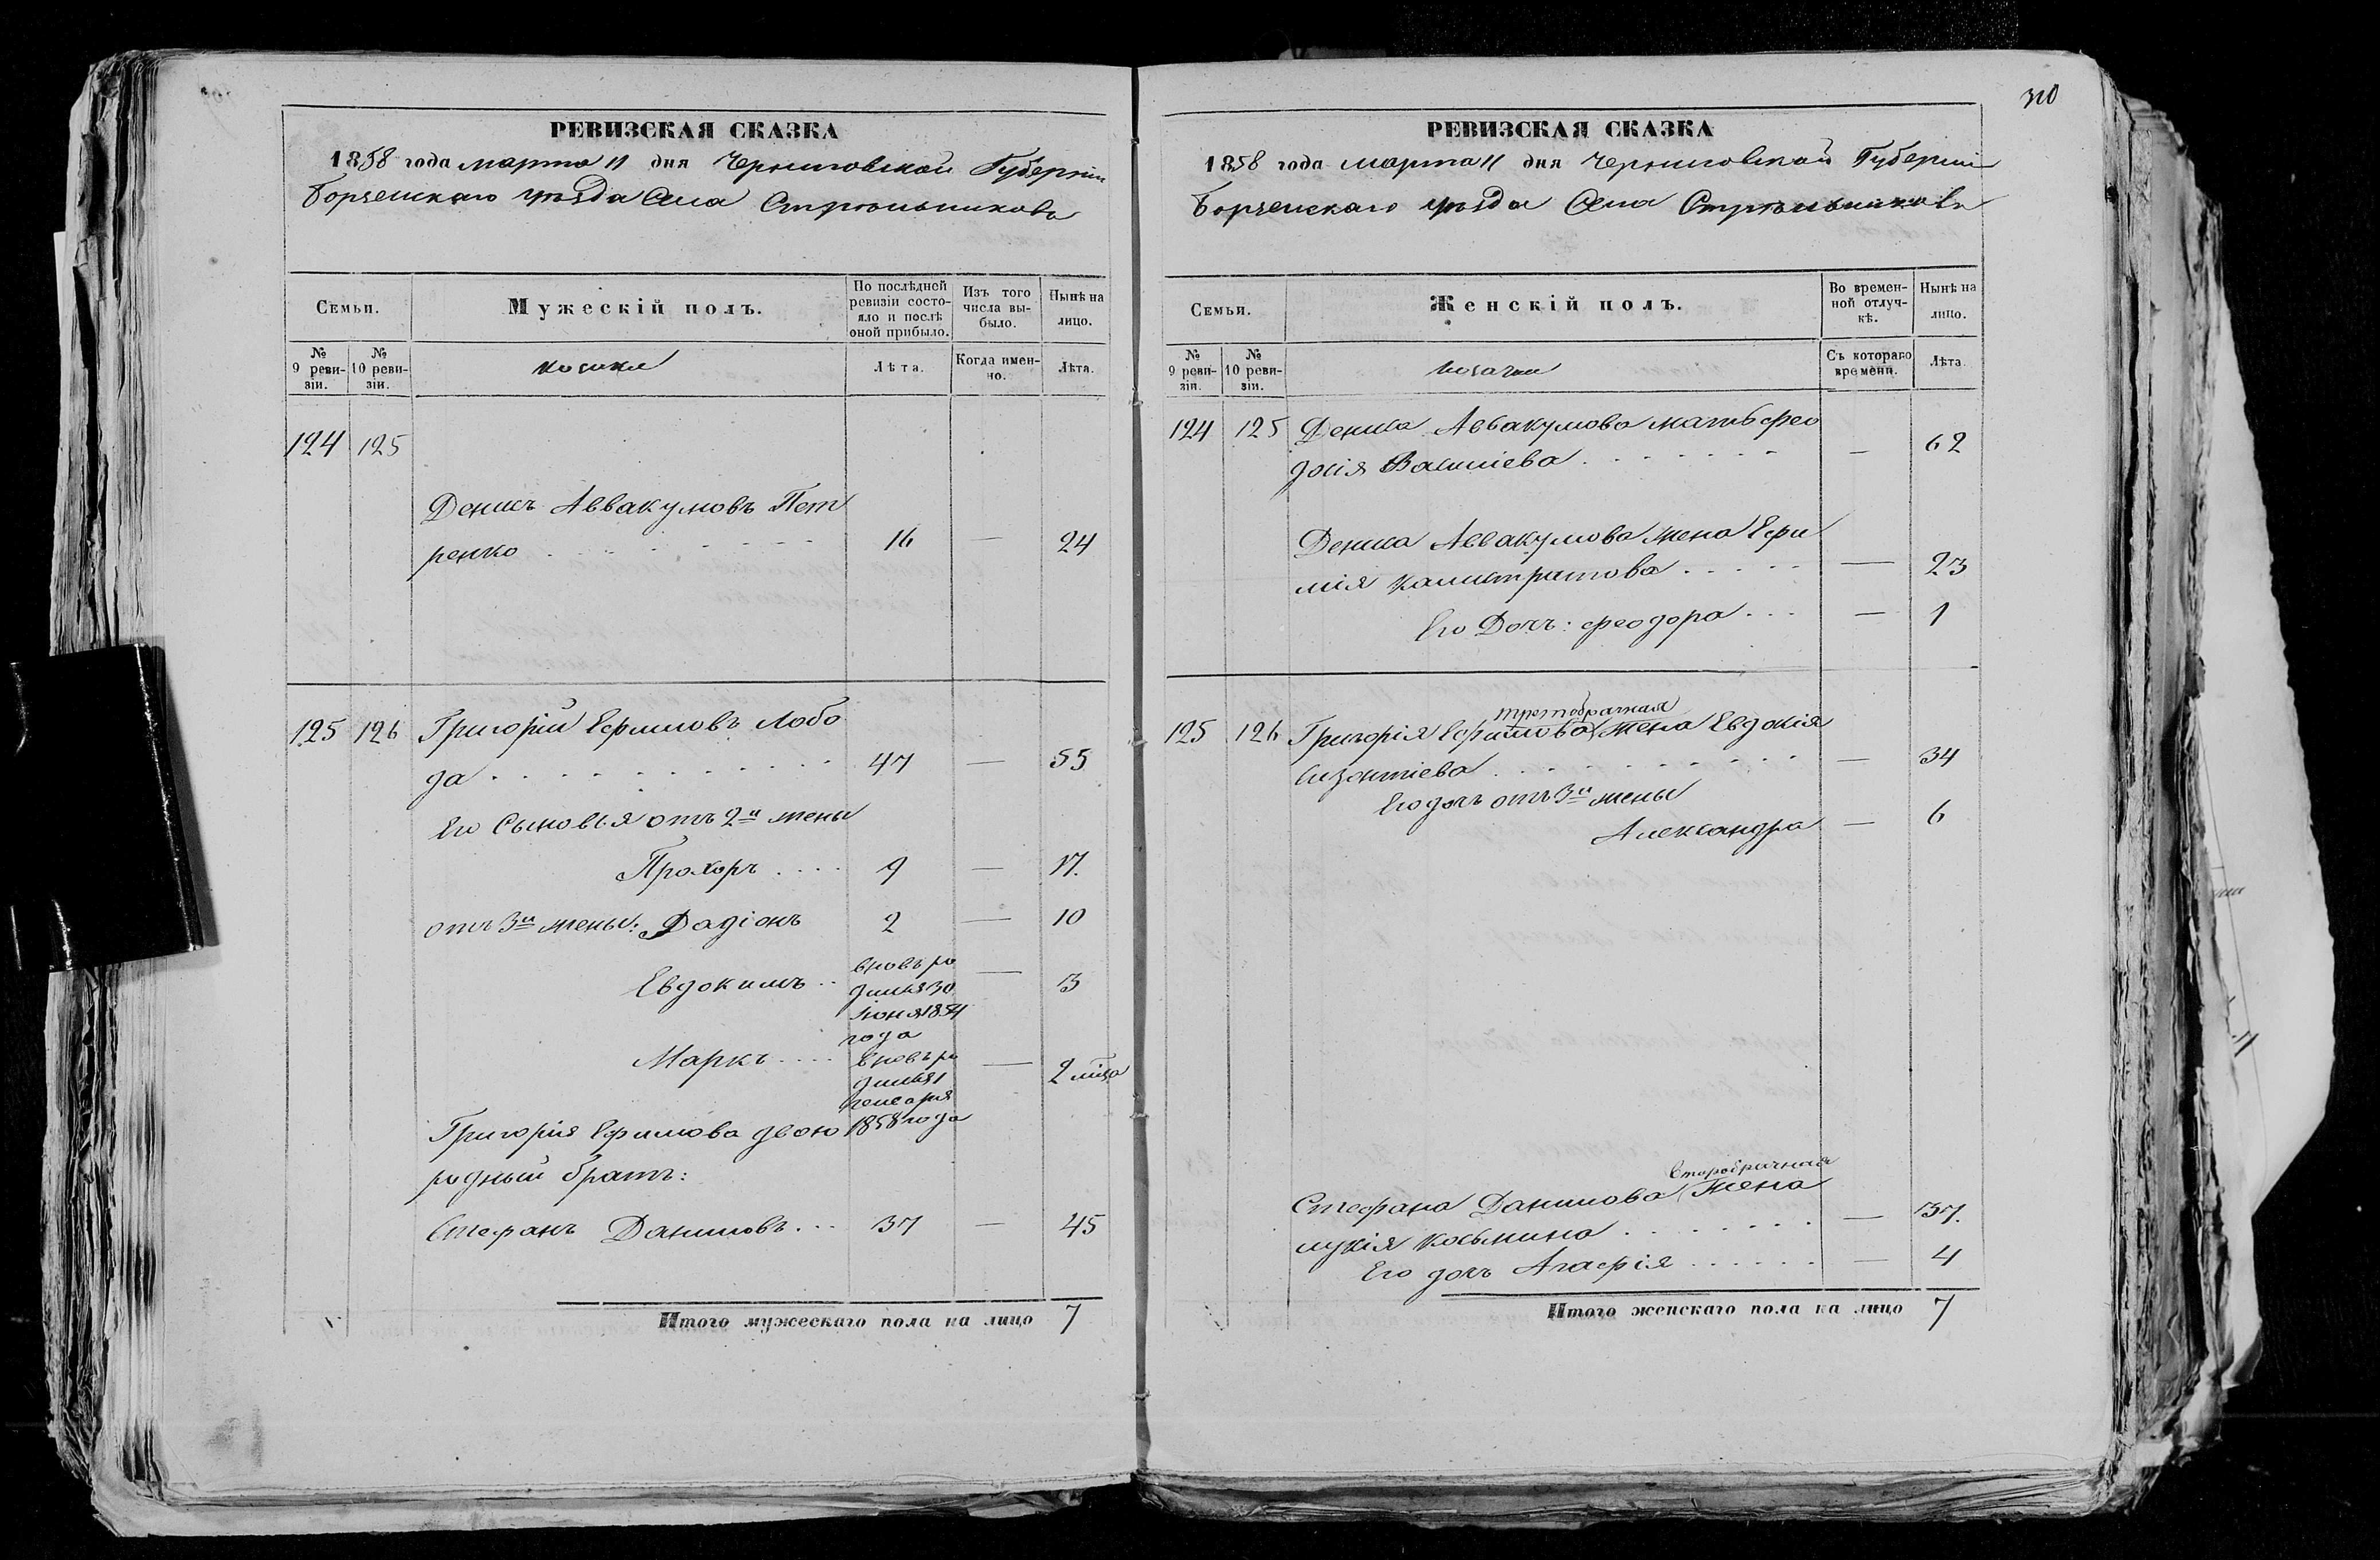 РЕВИЗСКАЯ СКАЗКА
1858 года марта 11 дня Черниговской Губерніи
Борзенскаго уѣзда Села Стрѣльниковъ
Семьи.
Мужескій полъ.
По послѣдней ревизіи состояло и послѣ оной прибыло.
Изъ того числа выбыло.
Нынѣ на лицо.
№ 9 ревизіи.
№ 10 ревизіи.
козаки
Лѣта.
Когда именно.
Лѣта.
124 125
Денисъ Аввакумовъ Пет
ренко 16 — 24
125 126 Григорій Ефимовъ Лобо
да 47 — 55
Его Сыновья отъ 2й жены
Прохоръ 9 — 17.
отъ 3й жены: Радіонъ 2 — 10
Евдокимъ вновь ро — 3
дился 30
Іюня 1854
года
Маркъ вновь ро — 2 мца
дился 1
генваря
Григорія Ефимова двою 1858 года
родный братъ:
Стефанъ Даниловъ 37 — 45
Итого мужескаго пола на лицо 7
310
РЕВИЗСКАЯ СКАЗКА
1858 года марта 11 дня Черниговской Губерніи
Борзенскаго уѣзда Села Стрѣльниковъ
Семьи.
Женскій полъ.
Во временной отлучкѣ.
Нынѣ на лицо.
№ 9 ревизіи.
№ 10 ревизіи.
козачки
Съ котораго времени.
Лѣта.
124 125 Дениса Аввакумова мать Фео
досія Василіева — 62
Дениса Аввакумова жена Ефи
мія Калистратова — 23
Его Дочь: Феодора — 1
третобрачная
125 126 Григорія Ефимова жена Евдокія
Лизонтіева — 34
Его дочь отъ 3й жены
Александра — 6
Второбрачная
Стефана Данилова жена
Лукія Косьмина — 37.
Его дочь Агафія — 4
Итого женскаго пола на лицо 7